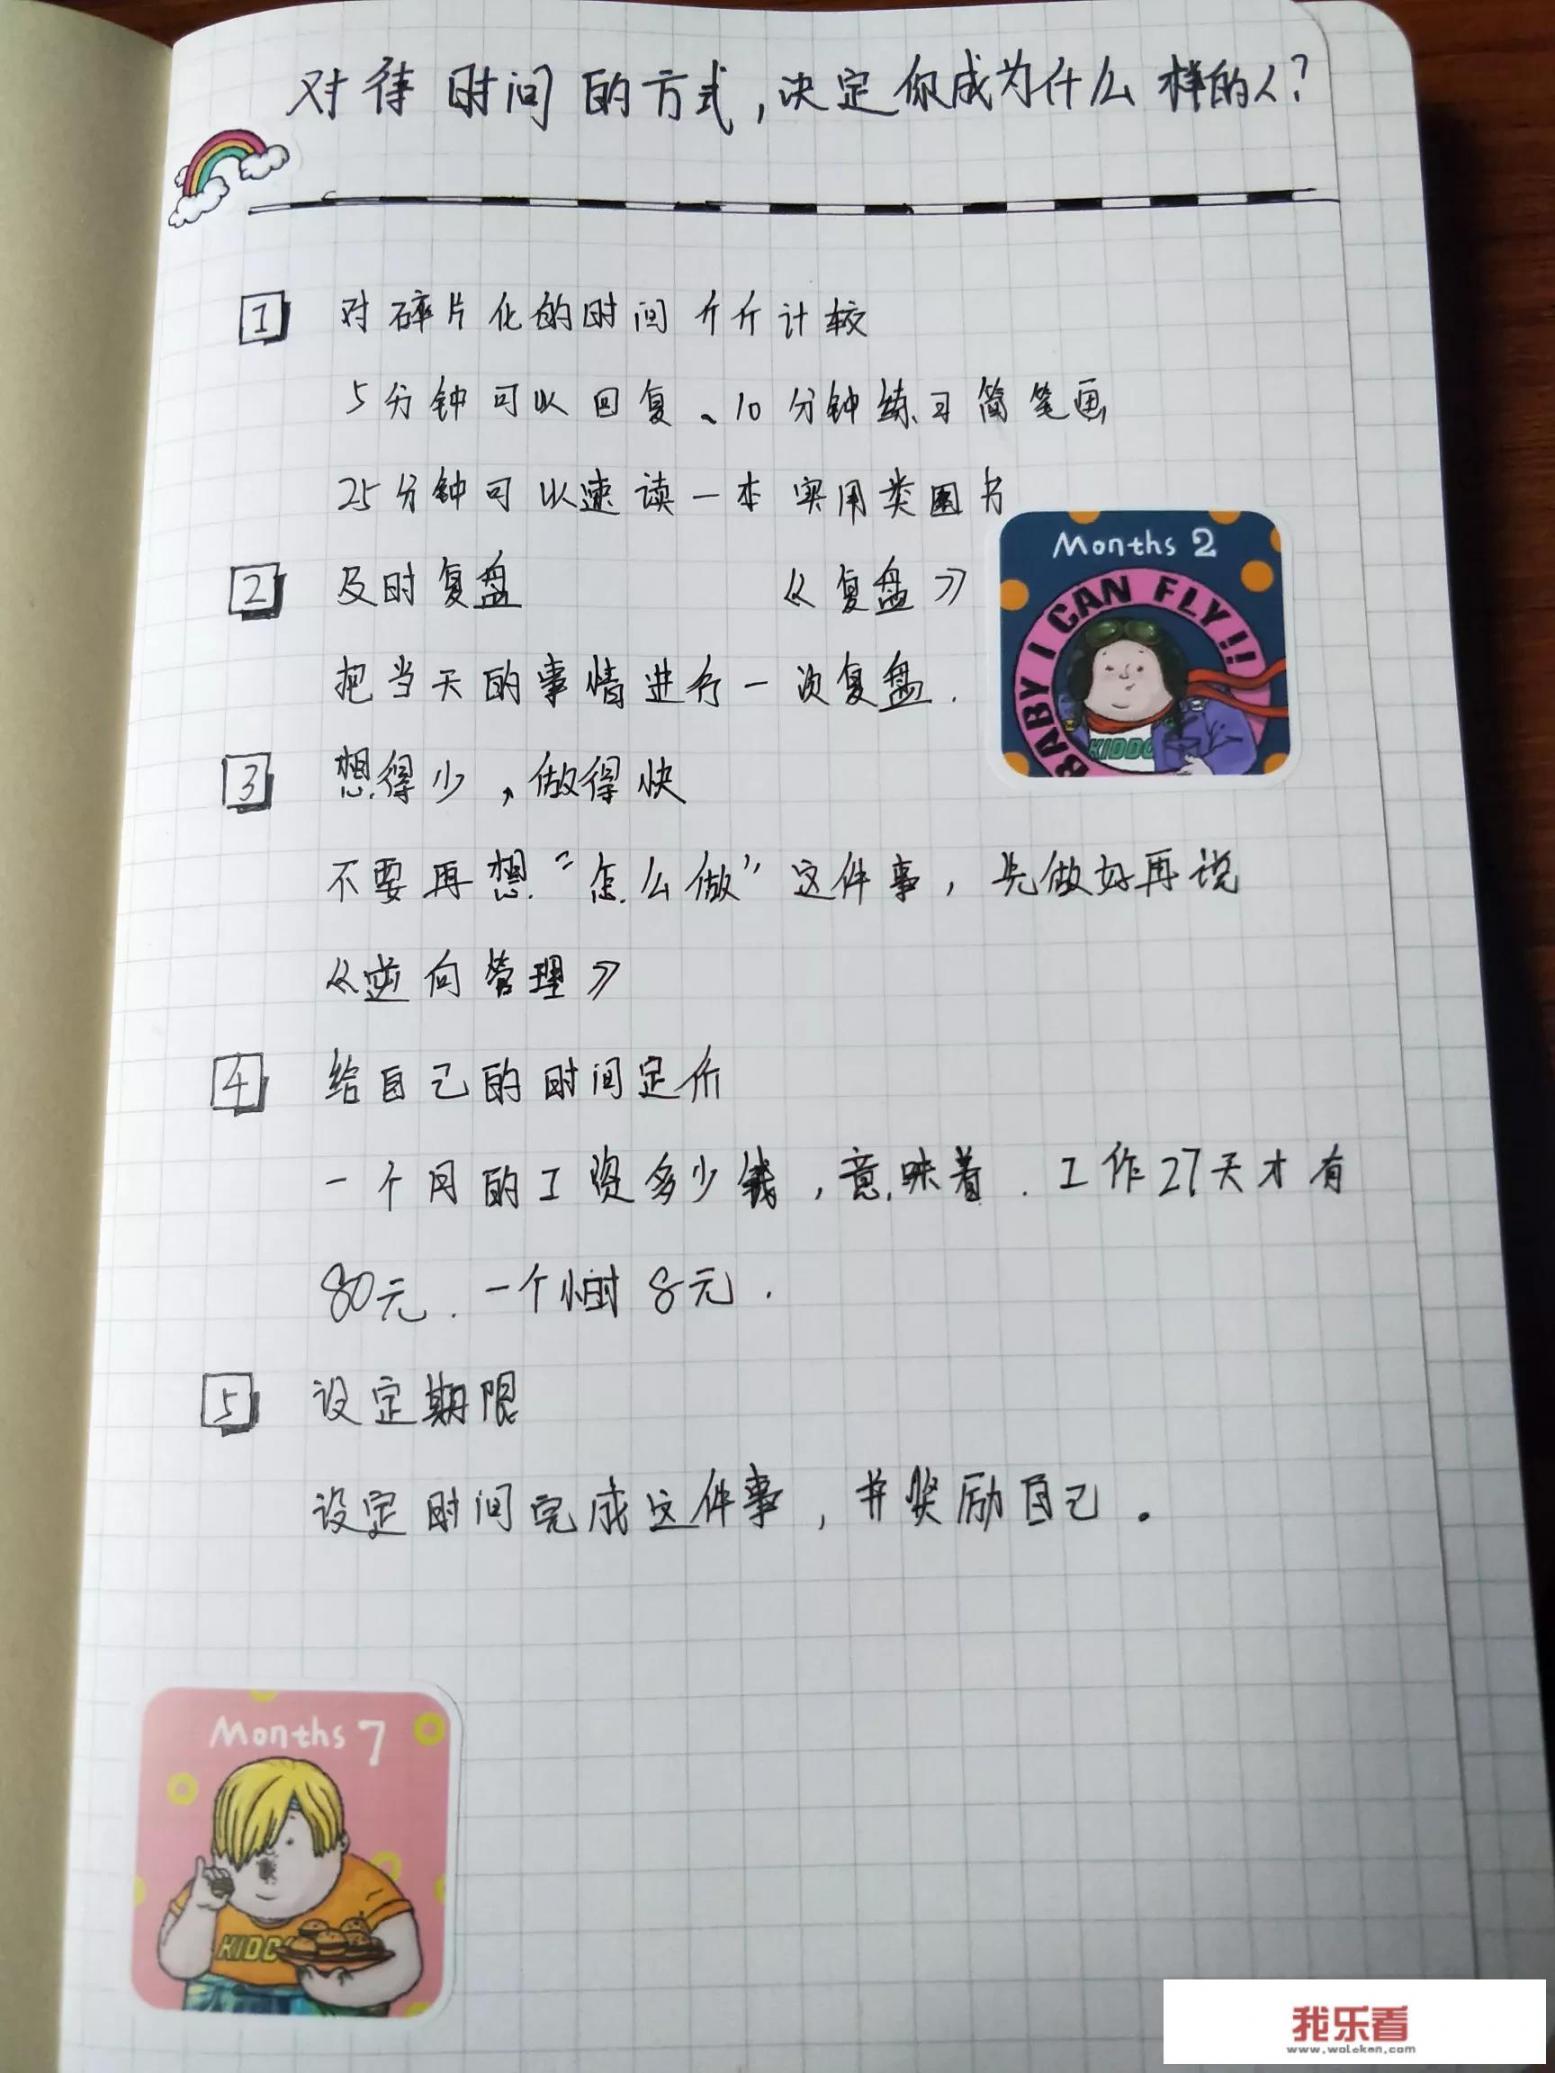 对待时间的方式，决定你成为什么样的人？
1 对碎片化的时间斤斤计较
5分钟可以回复、10分钟练习简笔画
25分钟可以速读一本实用类图书
2 及时复盘 《复盘》
把当天的事情进行一次复盘.
3 想得少，做得快
不要再想“怎么做”这件事，先做好再说
《逆向管理》
4 给自己的时间定价
一个月的工资多少钱，意味着.工作27天才有
80元.一个小时8元.
5 设定期限
设定时间完成这件事，并奖励自己。
Months 2
BABY I CAN FLY!!
KIDDO
Months 7
KIDDO
我乐看
www.woleken.com